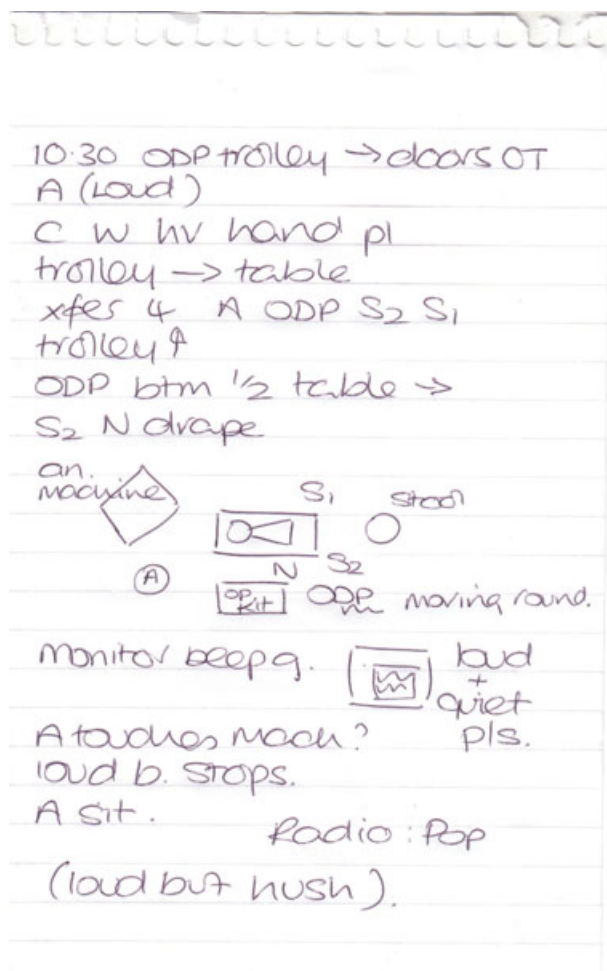 10.30 ODP trolley → doors OT
A (Loud)
C W hv hand pl
trolley → table
xfer 4 A ODP S2 S1
trolley ↑
ODP btm 1/2 table →
S2 N drape
an.
machine
S1 stool
N S2
A
op
kit
ODP moving round.
monitor beepg.
loud
+
quiet
pls.
A touches mach?
loud b. stops.
A sit.
Radio: Pop
(loud but hush).